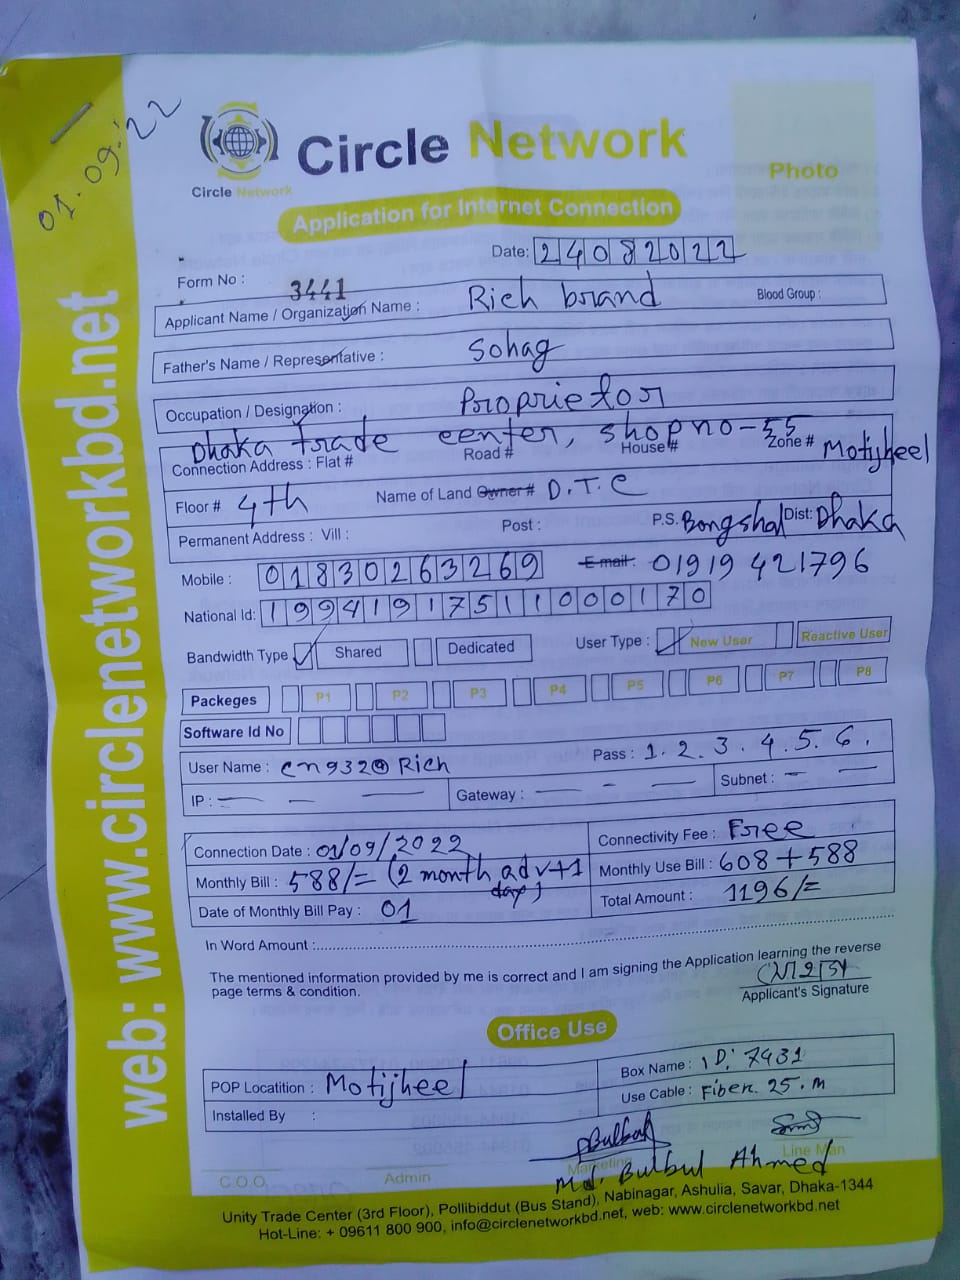 01.09.'22
Circle Network
Circle Network
Photo
Application for Internet Connection
Date: 24082022
Form No : 3441
Applicant Name / Organization Name : Rich brand Blood Group :
Father's Name / Representative : Sohag
Occupation / Designation : Proprietor
Dhaka trade center, shop no-55
Connection Address : Flat # Road # House # Zone # Motijheel
Floor # 4th Name of Land Owner# D.T.C
Permanent Address : Vill: Post : P.S. Bongshal Dist: Dhaka
Mobile : 01830263269 E-mail: 01919 421796
National Id: 19941917511000170
Bandwidth Type Shared Dedicated User Type : New User Reactive User
Packeges P1 P2 P3 P4 P5 P6 P7 P8
Software Id No
User Name : Rich Pass : 1.2.3.4.5.6.
IP : — — — Gateway : — - — Subnet : — —
Connection Date : 01/09/2022 Connectivity Fee : Free
Monthly Bill : 588/= (2 month adv+1 day) Monthly Use Bill : 608+588
Date of Monthly Bill Pay : 01 Total Amount : 1196/=
In Word Amount :
The mentioned information provided by me is correct and I am signing the Application learning the reverse
page terms & condition.
Applicant's Signature
Office Use
POP Locatition : Motijheel Box Name : ID: 7431
Installed By : Use Cable : Fiber. 25.m
Bulbul
C.O.O. Admin Marketing Line Man
Md. Bulbul Ahmed
Unity Trade Center (3rd Floor), Pollibiddut (Bus Stand), Nabinagar, Ashulia, Savar, Dhaka-1344
Hot-Line: + 09611 800 900, info@circlenetworkbd.net, web: www.circlenetworkbd.net
web: www.circlenetworkbd.net